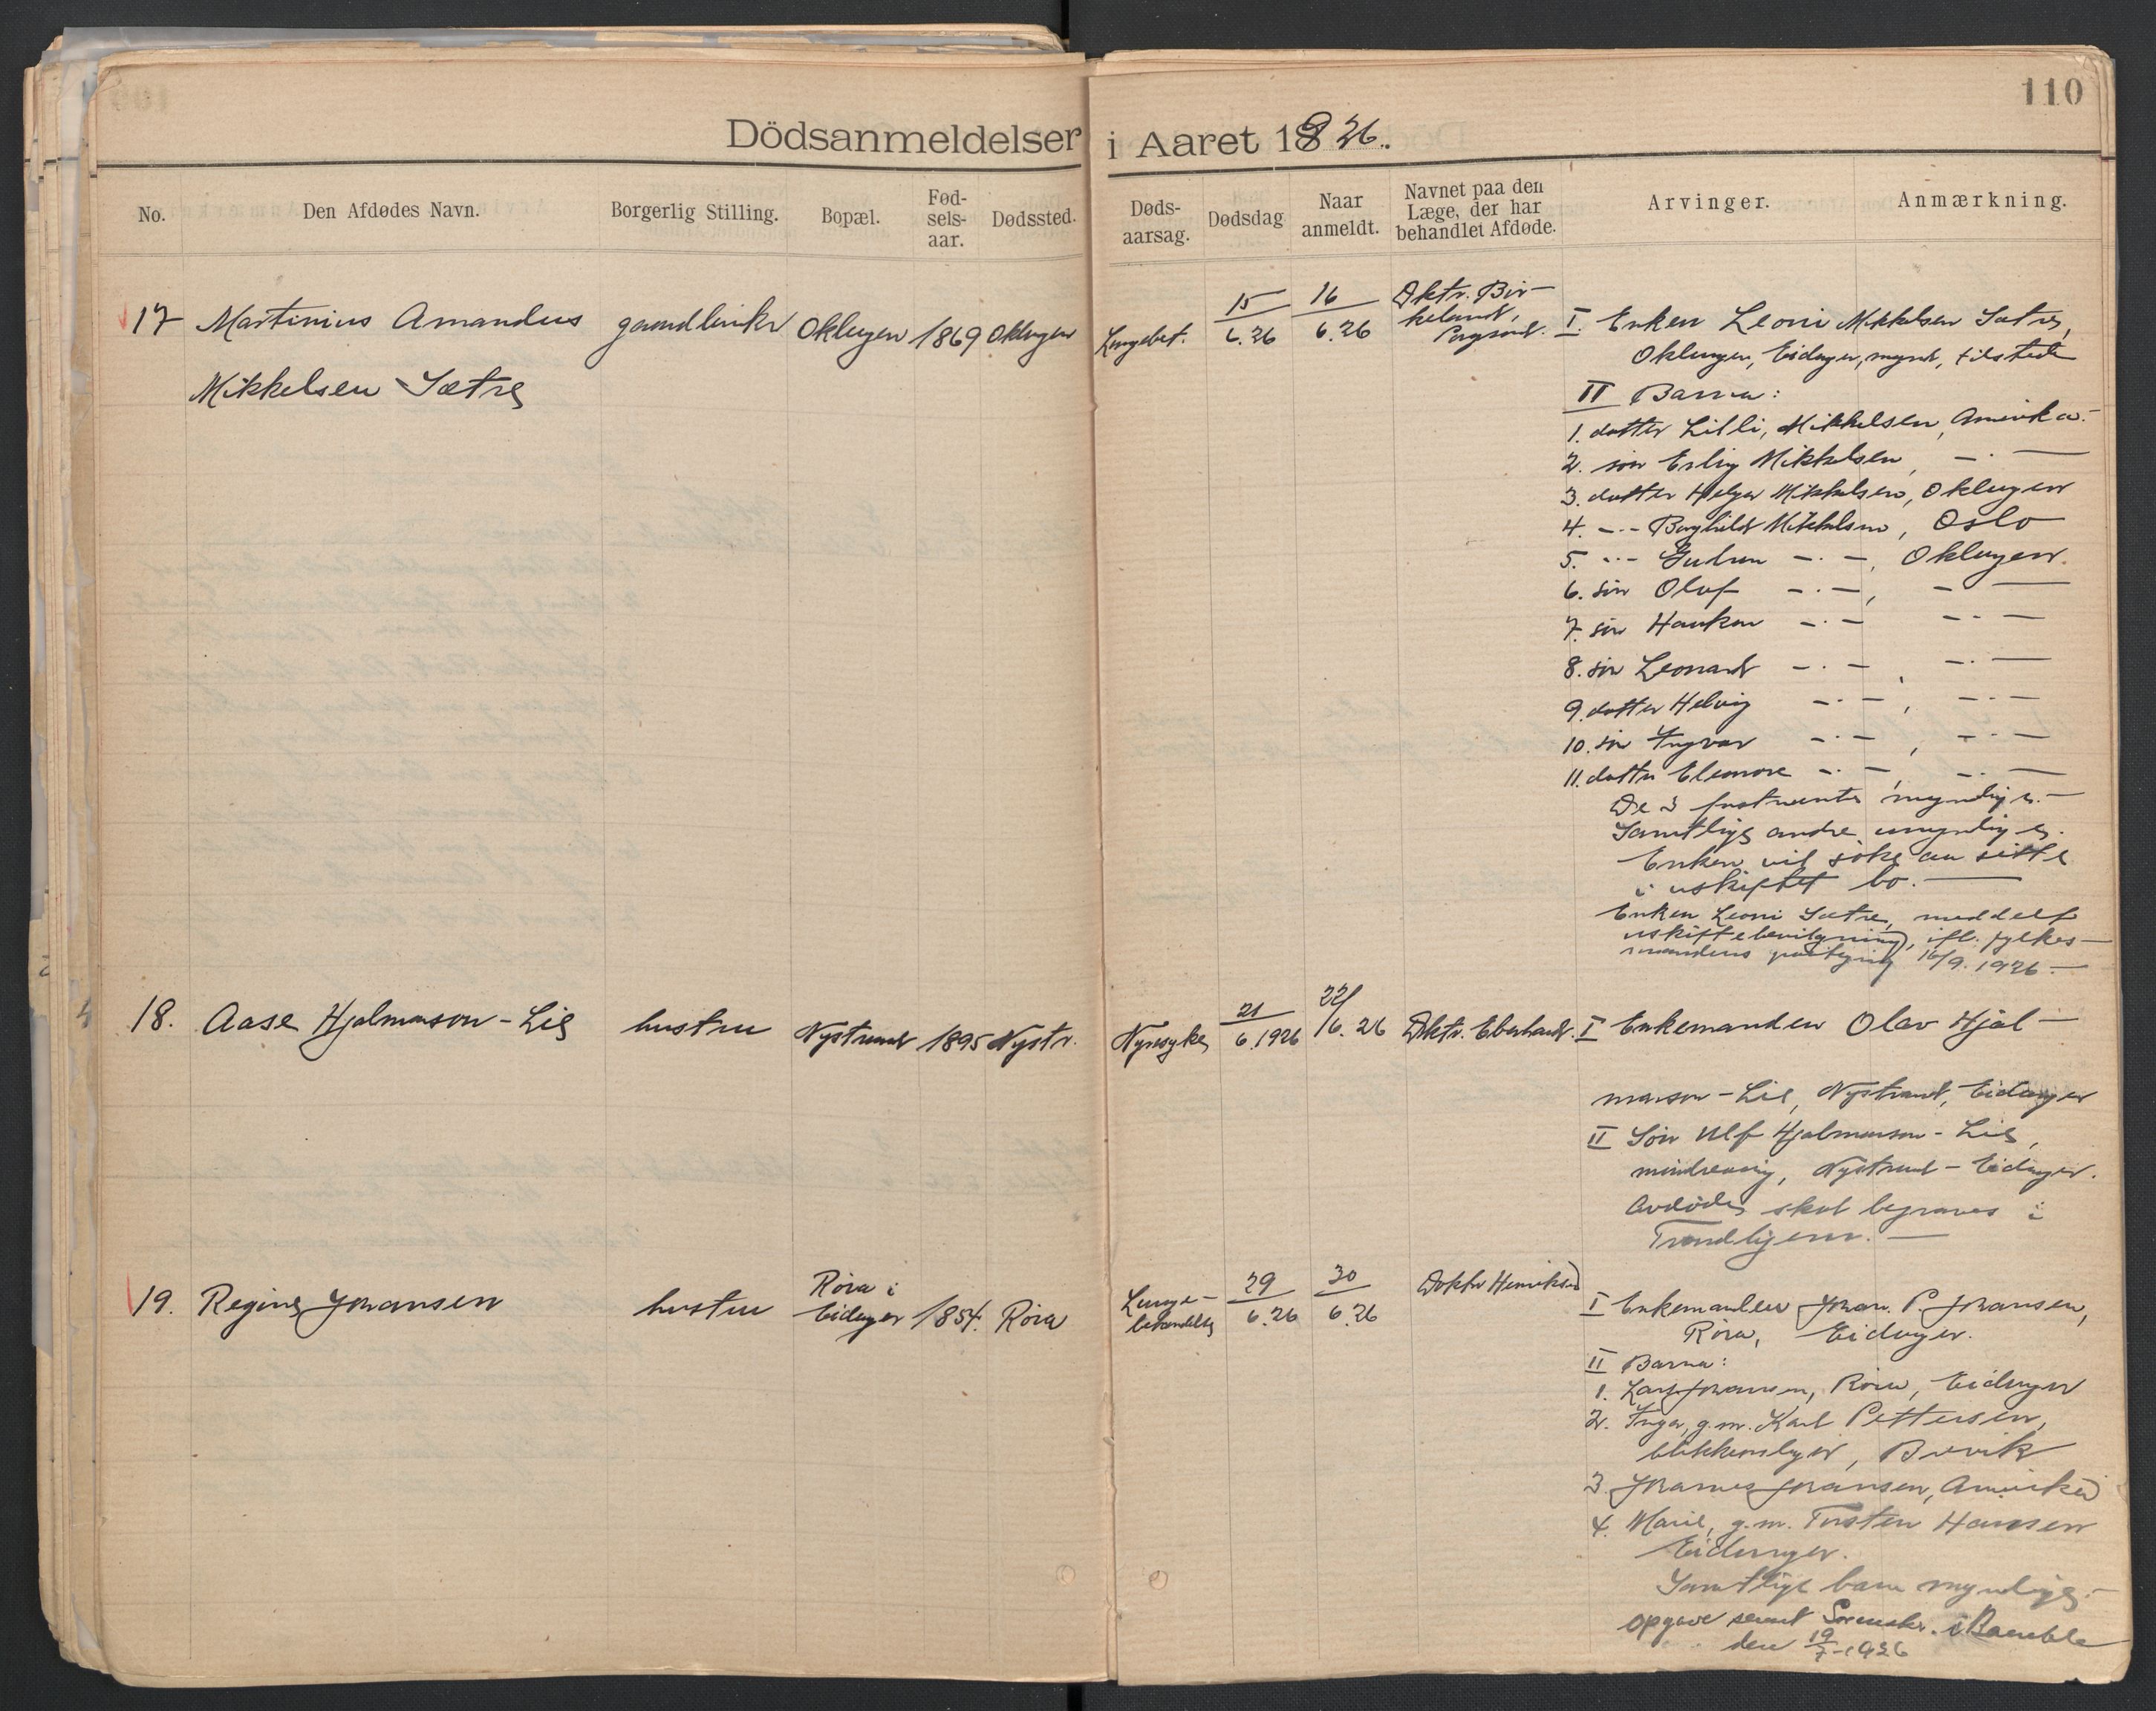 110
Dödsanmeldelser i Aaret 1926.
No. Den Afdødes Navn. Borgerlig Stilling. Bopæl. Fød-sels-aar. Dødssted. Døds-aarsag. Dødsdag Naar anmeldt. Navnet paa den Læge, der har behandlet Afdøde. Arvinger. Anmærkning.
17 Martinius Amandus gaardbruker Oklugen 1869 Oklugen Lungebet. 15/6.26 16/6.26 Dktr. Bir-
keland, Porsgrund.
Mikkelsen Sætre
I. Enken Leoni Mikkelsen Sætre,
Oklugen, Eidanger, mynd, tilstede
II Barna:
1. datter Lilli, Mikkelsen, Amerika.-
2. søn Erling Mikkelsen, - . -
3. datter Helga Mikkelsen, Oklugen
4. -..- Borghild Mikkelsen, Oslo
5. -..- Gudrun - . -, Oklugen.
6. søn Olaf - . -, - -
7. søn Haakon - . - - . -
8. søn Leonard - . -, - . -
9. datter Helvig - . -, - . -
10. søn Ingvar - . -, - . -
11. datter Eleonore - . -, - . -
De 3 førstnævnte myndige.-
Samtlige andre umyndige.
Enken vil søke om sitte
i uskiftet bo. -
Enken Leoni Sætre, meddelt
uskiftebevilgning, ifl. fylkes-
mandens 16/9. 1926.-
18. Aase Hjalmarson-Lie hustru Nystrand 1895 Nystr. Nyresyke 21/6.1926 22/6.26 Dktr. Eberhardt. I Enkemanden Olav Hjal-
marson-Lie, Nystrand, Eidanger
II Søn Ulf Hjalmarson-Lie,
mindreaarig, Nystrand-Eidanger.
Avdøde skal begraves i
Trondhjem. -
19. Regine Johansen hustru Røra i
Eidanger 1854. Røra Lunge-
betændelse 29/6.26 30/6.26 Doktor Henriksen
I Enkemanden Johan P. Johansen,
Røra, Eidanger.
II Barna:
1. Lars Johansen, Røra, Eidanger
2. Inga, g.m. Karl Pettersen,
blikkenslager, Brevik
3. Johannes Johansen, Amerika
4. Marie, g.m. Torsten Hansen
Eidanger.
Samtlige barn myndige.-
Opgave sendt Sorenskr. i Bamble
den 19/7-1926